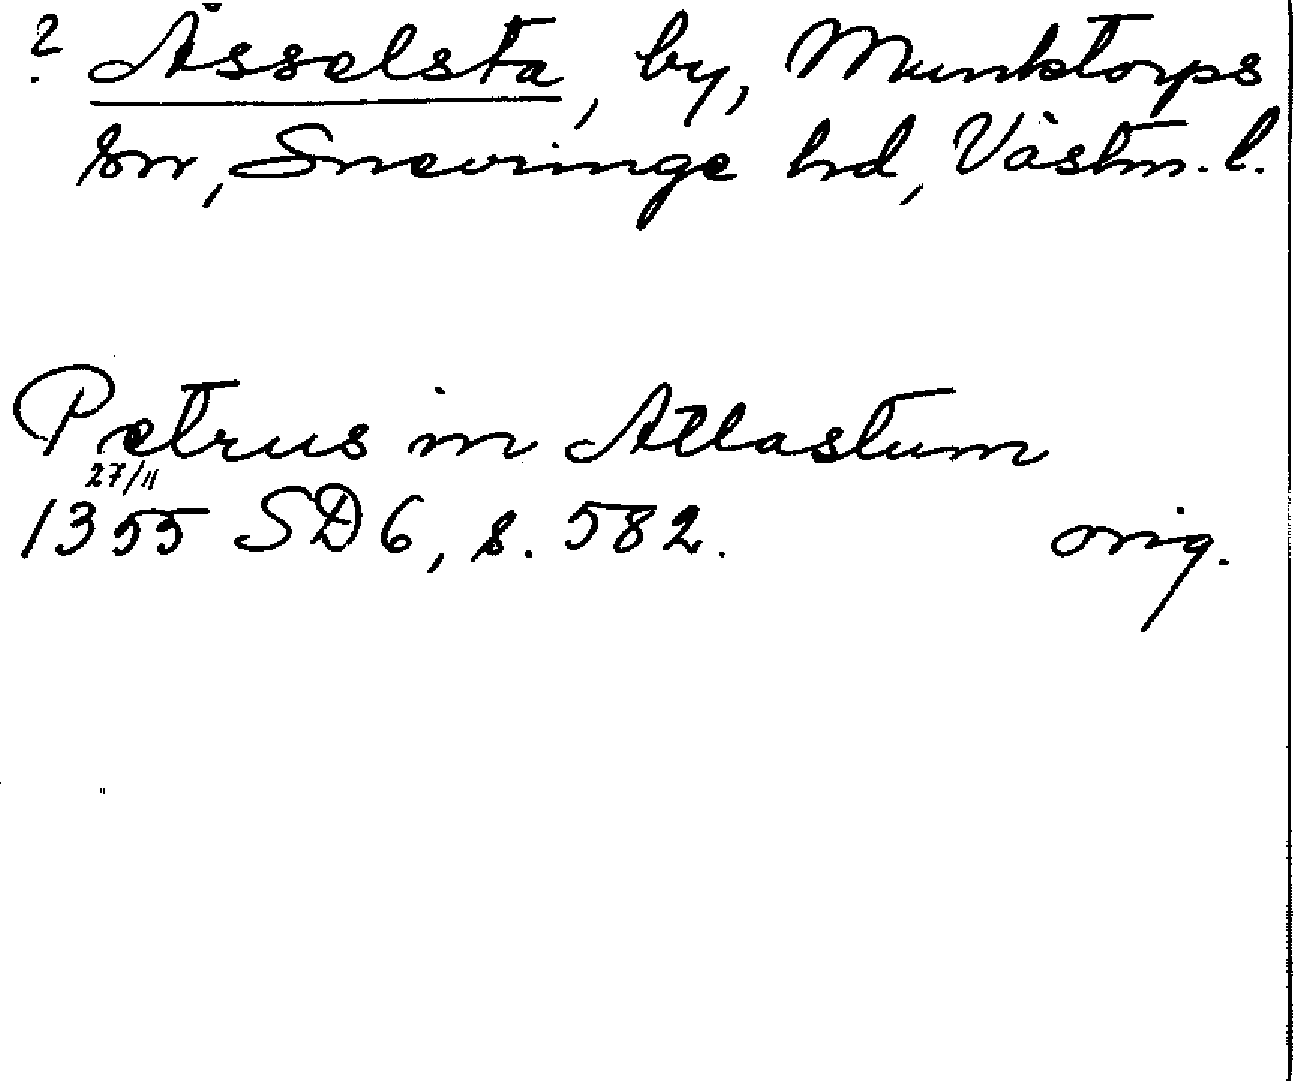 ? Åsselsta, by, Munktorps
sn, Snevringe hd, Västm. l.
Petrus in Allastum
27/11
1355 SD 6, s. 582. orig.